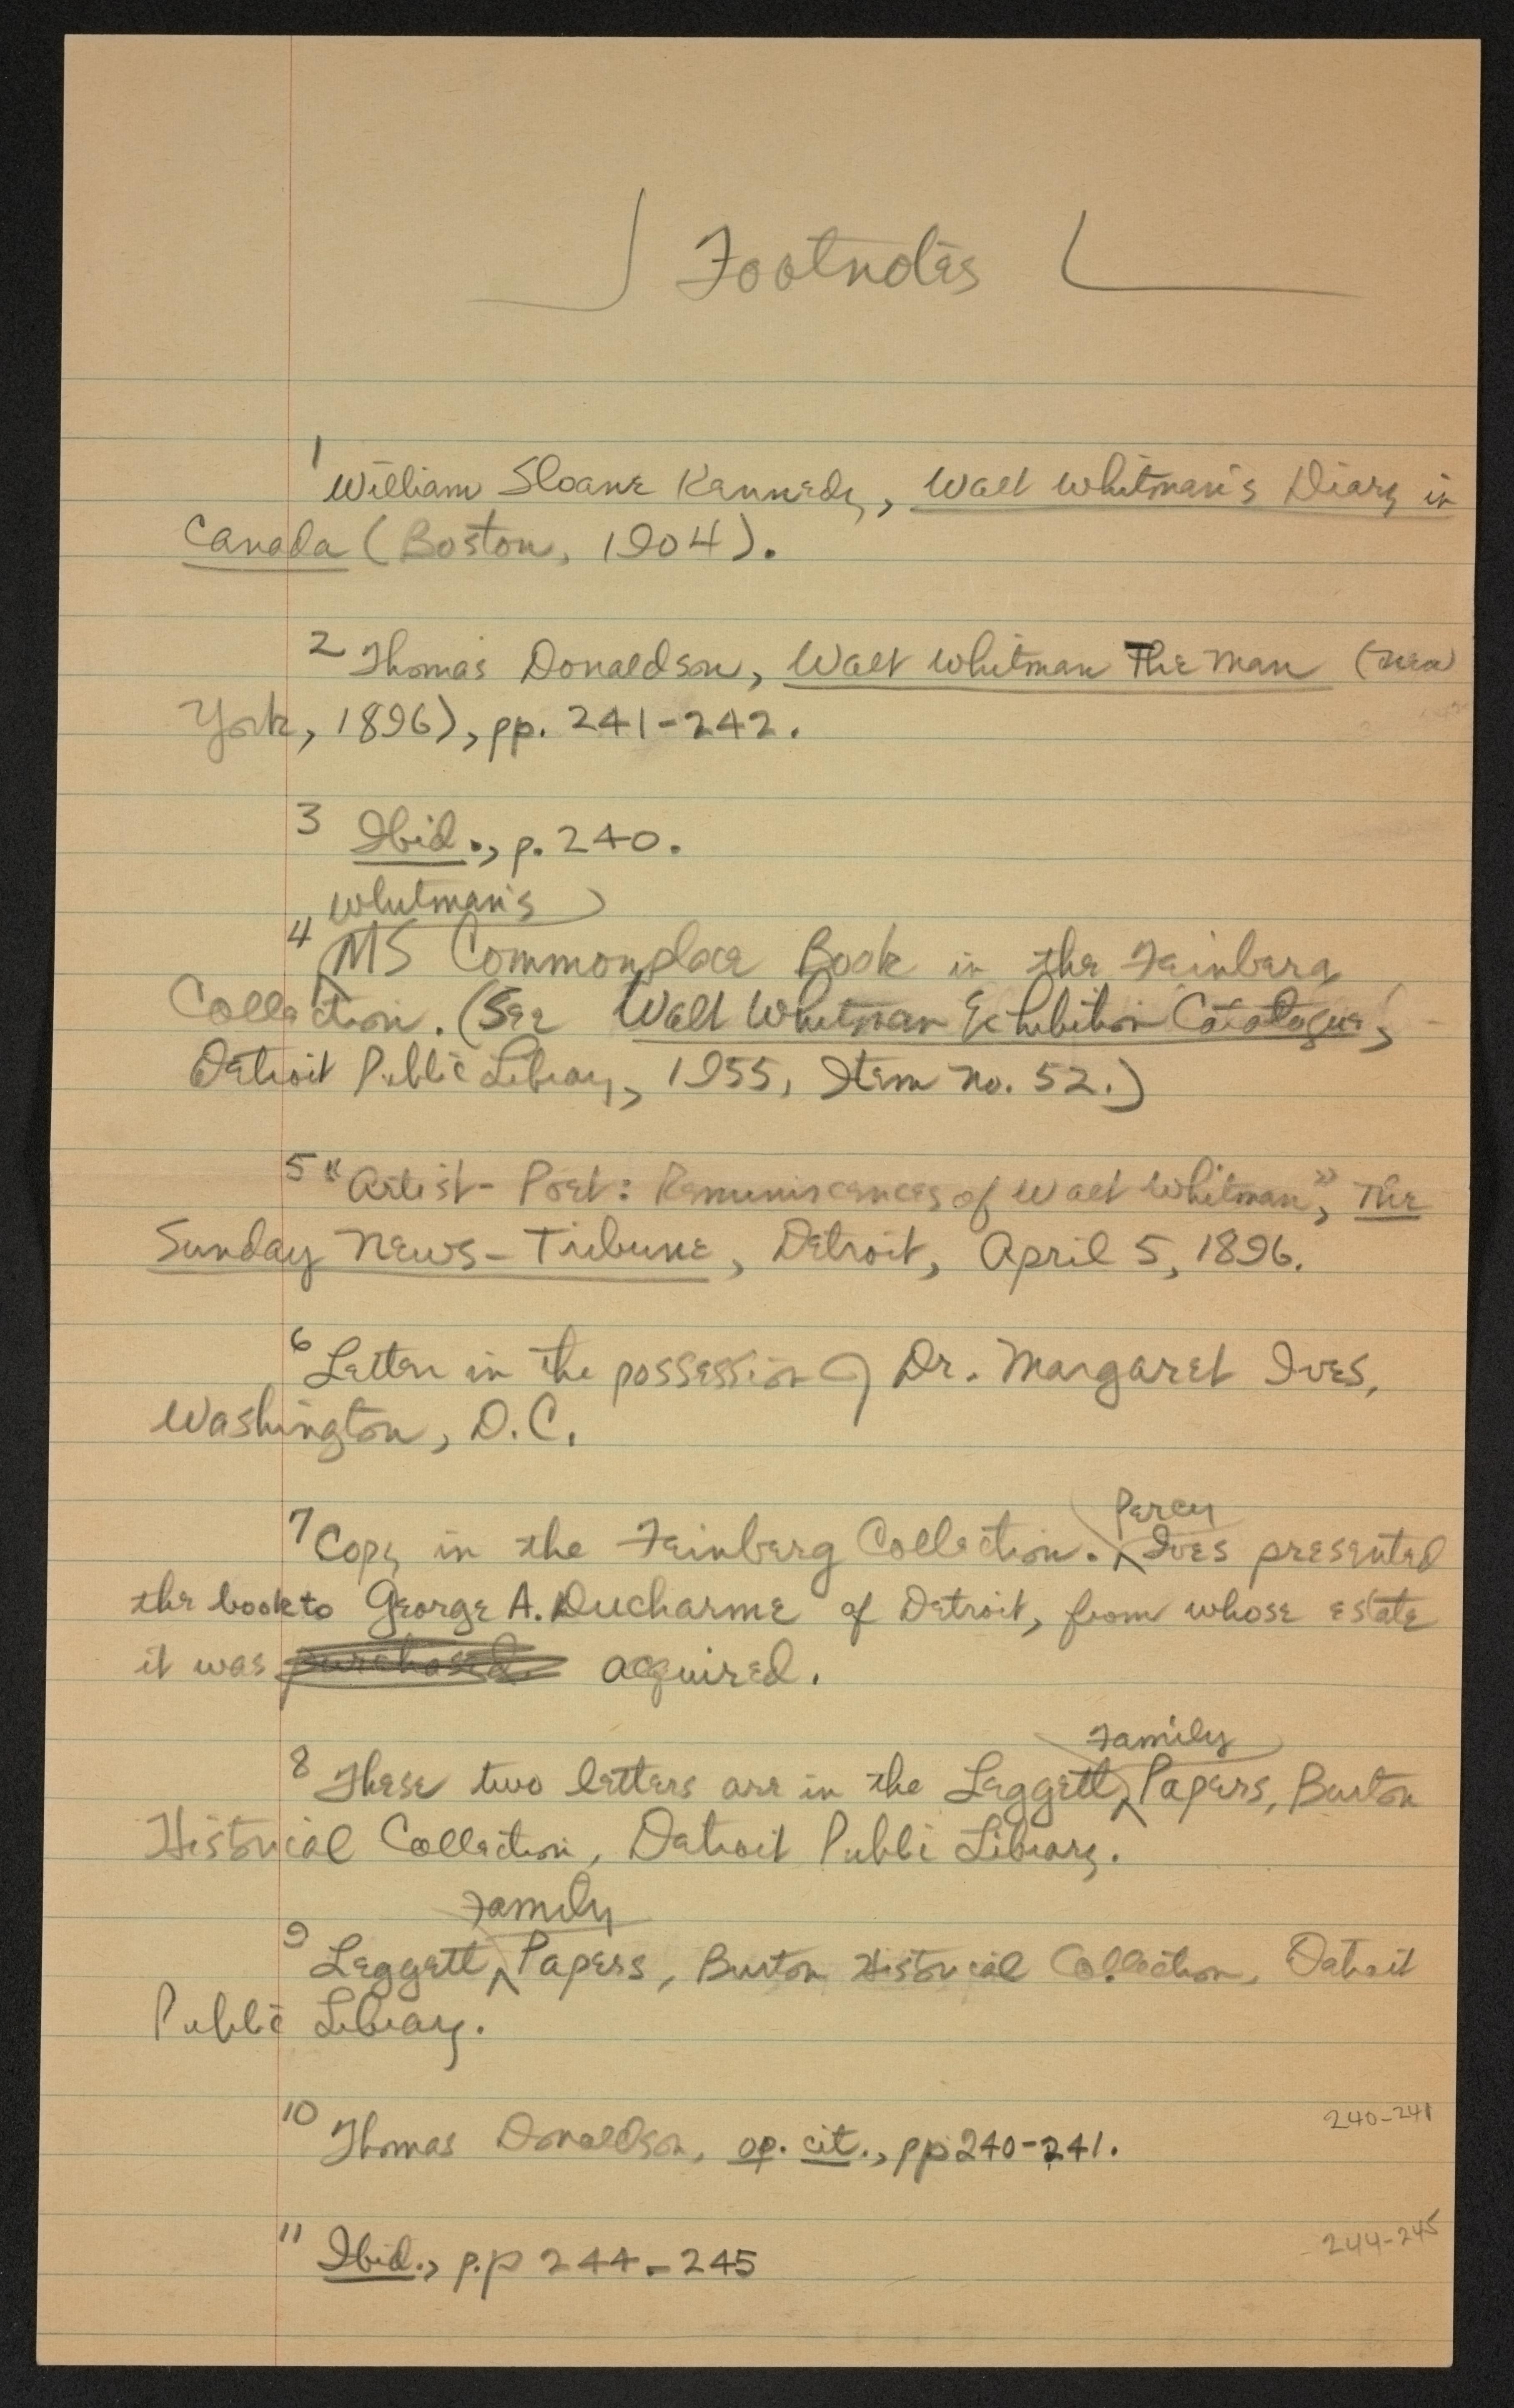 Footnotes
1 William Sloane Kennedy, Walt Whitman's Diary in
Canada (Boston, 1904).
2 Thomas Donaldson, Walt Whitman The Man (New
York, 1896), pp. 241-242.
3 Ibid., p. 240.
Whitman's
4 MS Commonplace Book in the Feinberg
Collection. (See Walt Whitman Exhibition Catalogue,
Detroit Public Library, 1955, Item No. 52.)
5 "Artist-Poet: Reminiscences of Walt Whitman", The
Sunday News-Tribune, Detroit, April 5, 1896.
6 Letter in the possession of Dr. Margaret Ives,
Washington, D.C.
Percy
7 Copy in the Feinberg Collection. Ives presented
the book to George A. Ducharme of Detroit, from whose estate
it was purchased acquired.
Family
8 These two letters are in the Leggett Papers, Burton
Historical Collection, Detroit Public Library.
Family
9 Leggett Papers, Burton Historical Collection, Detroit
Public Library.
240-241
10 Thomas Donaldson, op. cit., pp 240-241.
244-245
11 Ibid., p.p 244-245